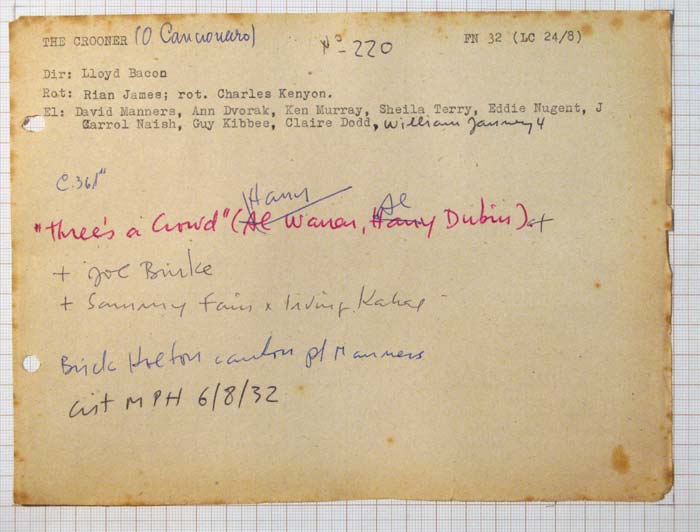 THE CROONER (O Cancioneiro) Nº-220 FN 32 (LC 24/8)
Dir: Lloyd Bacon
Rot: Rian James; rot. Charles Kenyon.
El: David Manners, Ann Dvorak, Ken Murray, Sheila Terry, Eddie Nugent, J
Carrol Naish, Guy Kibbee, Claire Dodd, William Janney
C.361"
Harry Al
"Three's a Crowd" (Al Warren, Harry Dubin)
+ Joe Burke
+ Sammy Fain x Irving Kahal
Brick Holton canton p/ Manners
crit MPH 6/8/32